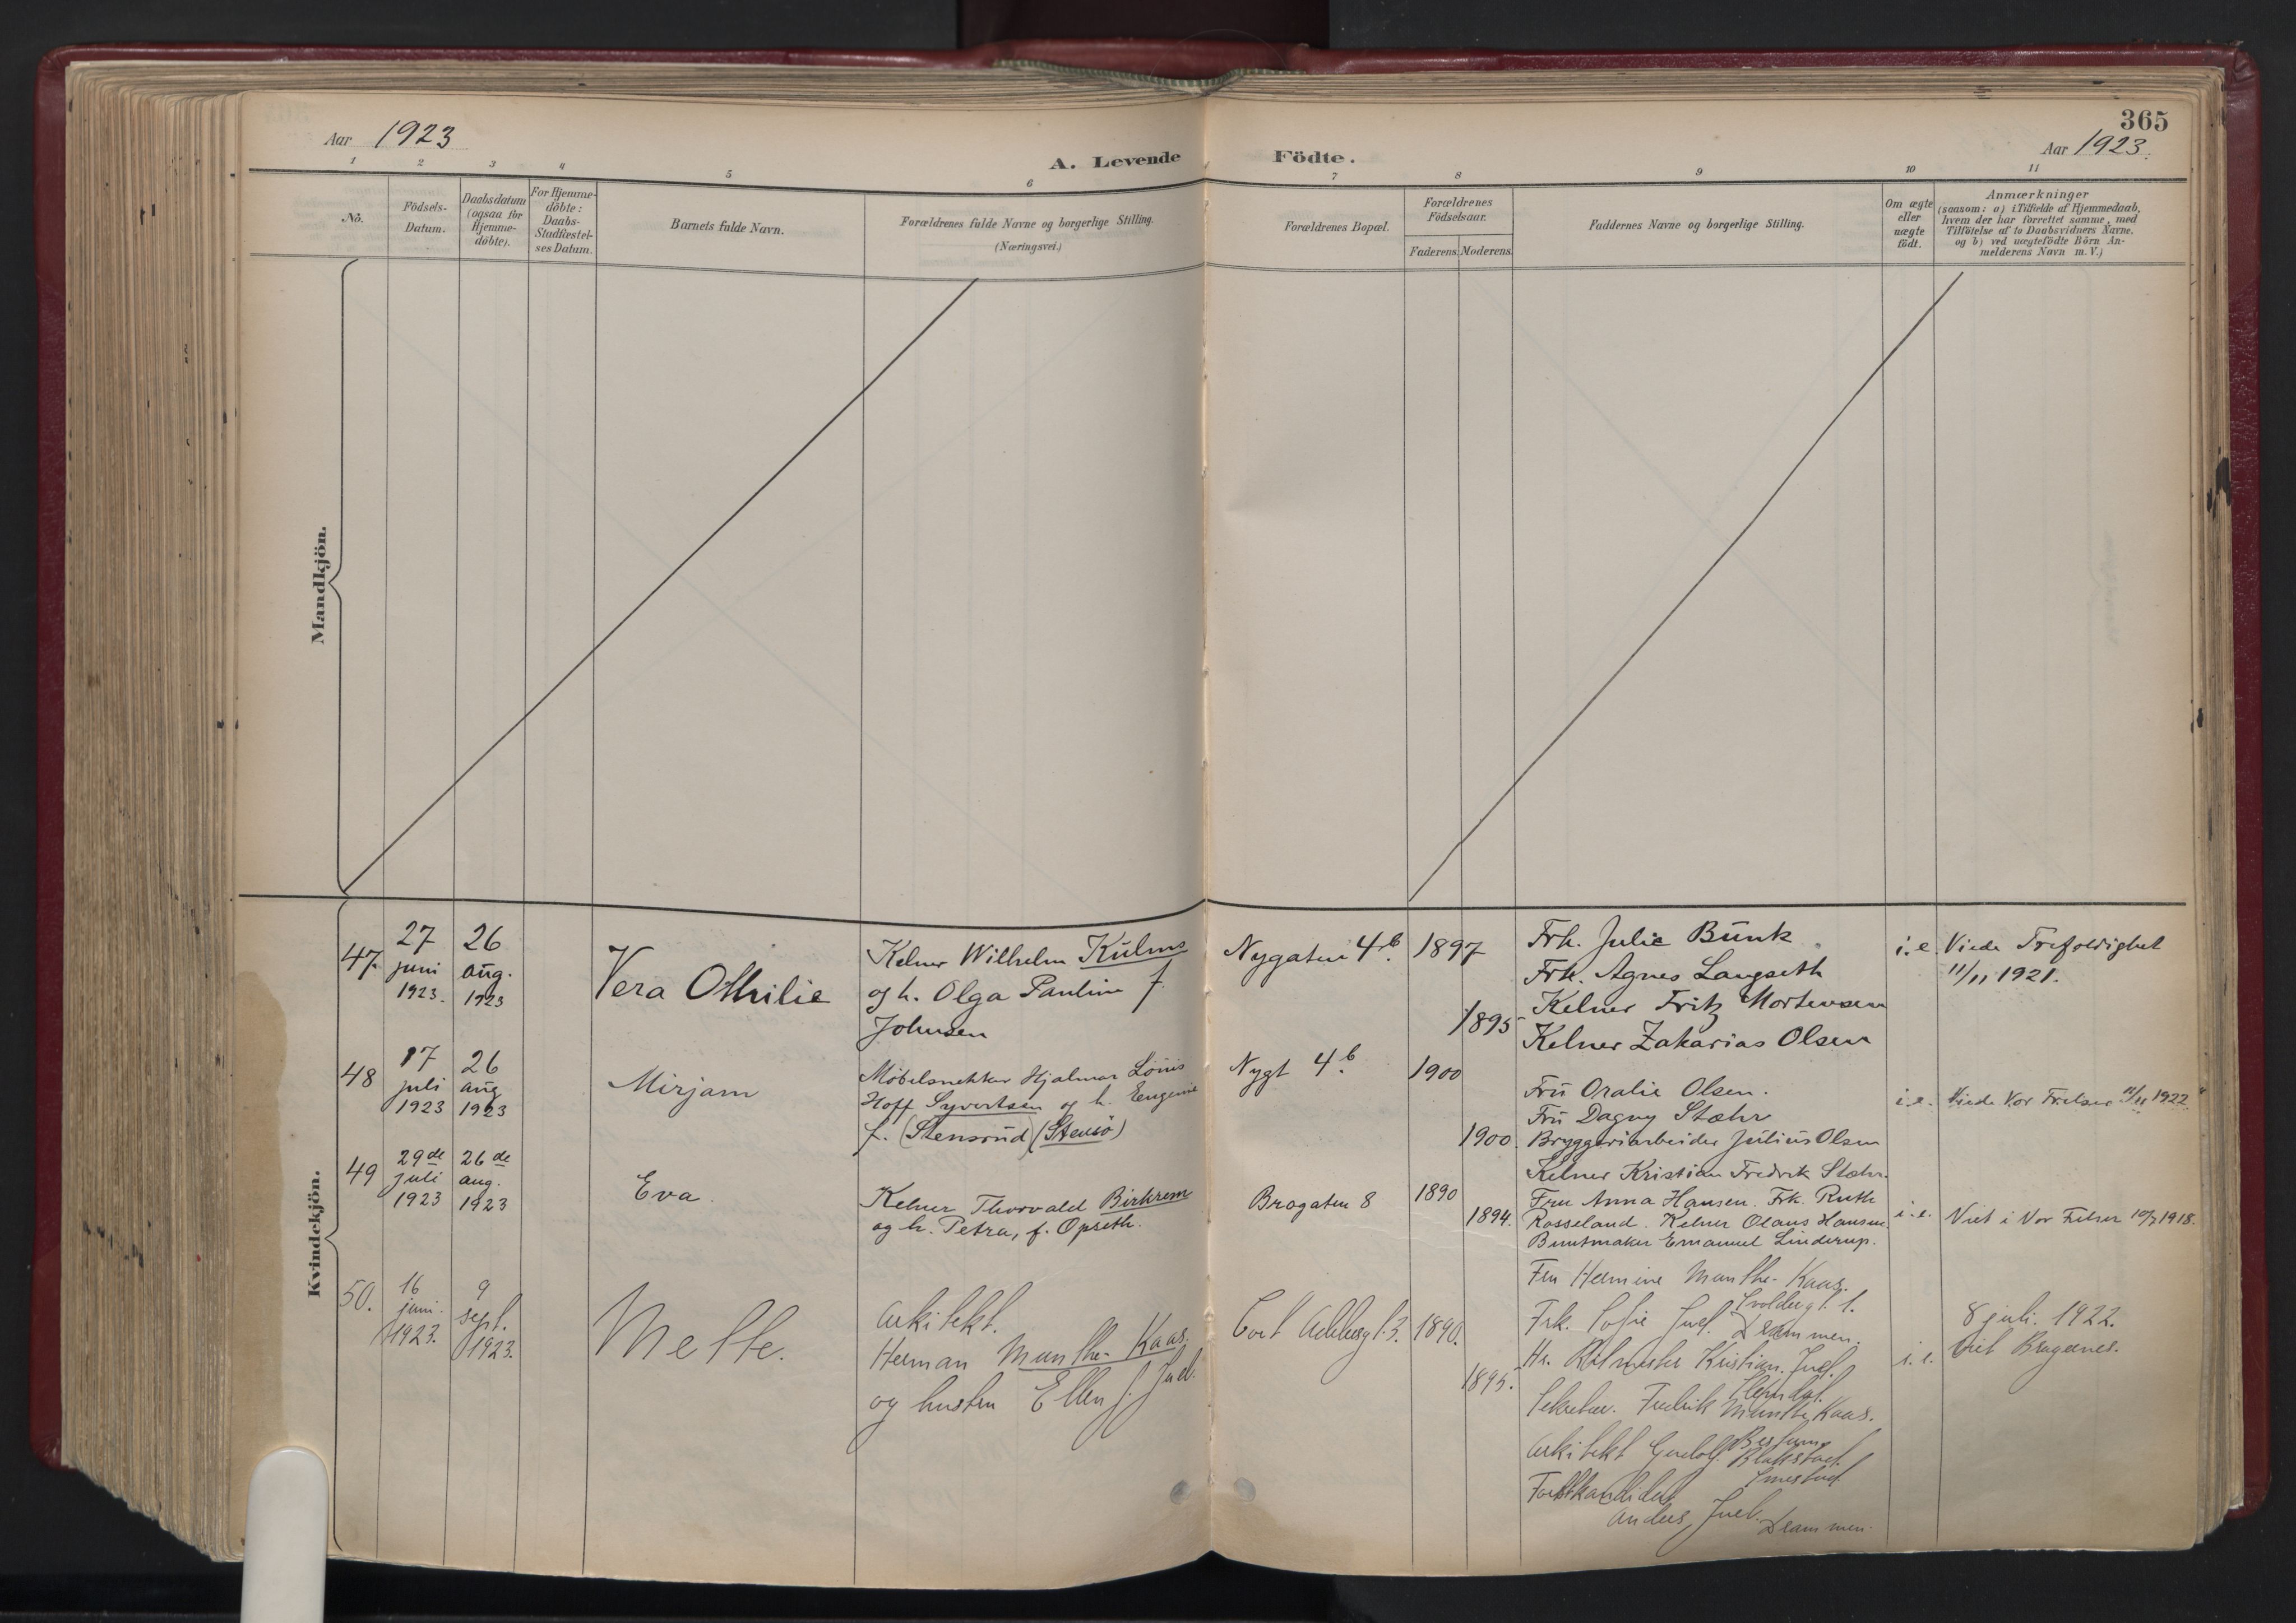 365
Aar 1923
A. Levende Födte.
Aar 1923.
1 2 3 4 5 6 7 8 9 10 11
No.
Födsels-Datum.
Daabsdatum (ogsaa for Hjemme-döbte).
For Hjemme-döbte: Daabs-Stadfæstel-ses Datum.
Barnets fulde Navn.
Forældrenes fulde Navne og borgerlige Stilling.
(Næringsvei.)
Forældrenes Bopæl.
Forældrenes Födselsaar.
Faderens. Moderens.
Faddernes Navne og borgerlige Stilling.
Om ægte eller uægte födt.
Anmærkninger
(saasom: a) i Tilfælde af Hjemmedaab,
hvem der har forrettet samme, med
Tilföielse af to Daabsvidners Navne,
og b) ved uægtefödte Börn An-
melderens Navn m. V.)
Mandkjön.
Kvindekjön.
47.
27 juni 1923.
26 aug. 1923
Vera Othilie
Kelner Wilhelm Kulms
og h. Olga Pauline f.
Johnsen
Nygaten 4b.
1897
1895
Frk. Julie Bunk
Frk. Agnes Langseth
Kelner Fritz Mortensen
Kelner Zakarias Olsen
i.e.
Viede Trefoldighet
11/11 1921.
48
17 juli 1923
26 aug 1923
Mirjam
Møbelsnekker Hjalmar Louis
Hoff Syvertsen og h. Eugenie
f. (Stensrud) (Stensø)
Nygt 4b.
1900
1900.
Fru Oralie Olsen.
Fru Dagny Stæhr
Bryggeriarbeider Julius Olsen
Kelner Kristian Fredrik Stæhr.
i.e.
Viede Vor Frelser 1922.
49
29de juli 1923
26de aug. 1923
Eva.
Kelner Thorvald Birkrem
og h. Petra, f. Opseth.
Brogaten 8
1890
1894.
Fru Anna Hansen. Frk. Ruth
Rosseland. Kelner Olaus Hansen
Buntmaker Emanuel Linderup.
i.e.
Viet i Vor Frelser 10/7 1918.
50.
16 juni 1923.
9 sept. 1923.
Mette.
Arkitekt.
Herman Munthe-Kaas.
og hustru Ellen f. Juel.
Cort Adelersgt. 3.
1890.
1895.
Fru Hermine Munthe-Kaas.
Frk. Sofie Juel. Drammen.
Hr. Ritmester Kristian Juel.
Sekretær. Fredrik Munthe Kaas.
Bestum.
Arkitekt Gudolf Blakstad.
Smestad
Forstkandidat
Anders Juel. Drammen.
i.e.
8 juli. 1922.
Viet Bragernes.